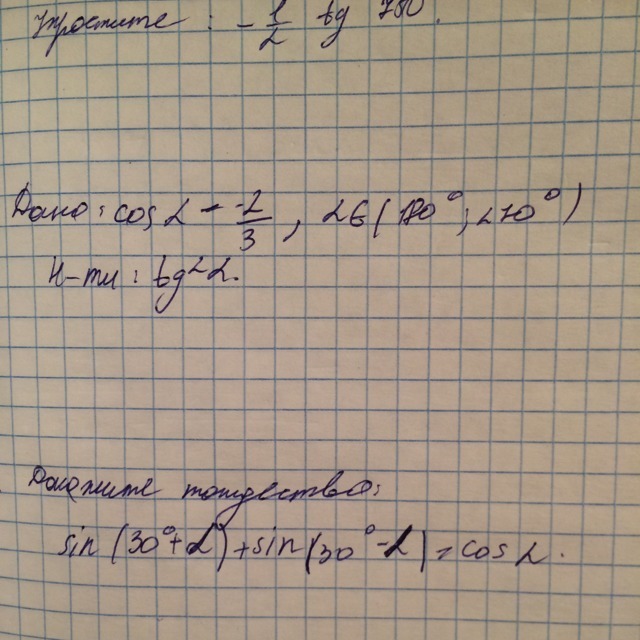 Упростите: - 1/2 tg 780°.
Дано: cos α = -2/3, α ∈ (180°; 270°)
Н-ти: tg²α.
Докажите тождество:
sin (30° + α) + sin (30° - α) = cos α.